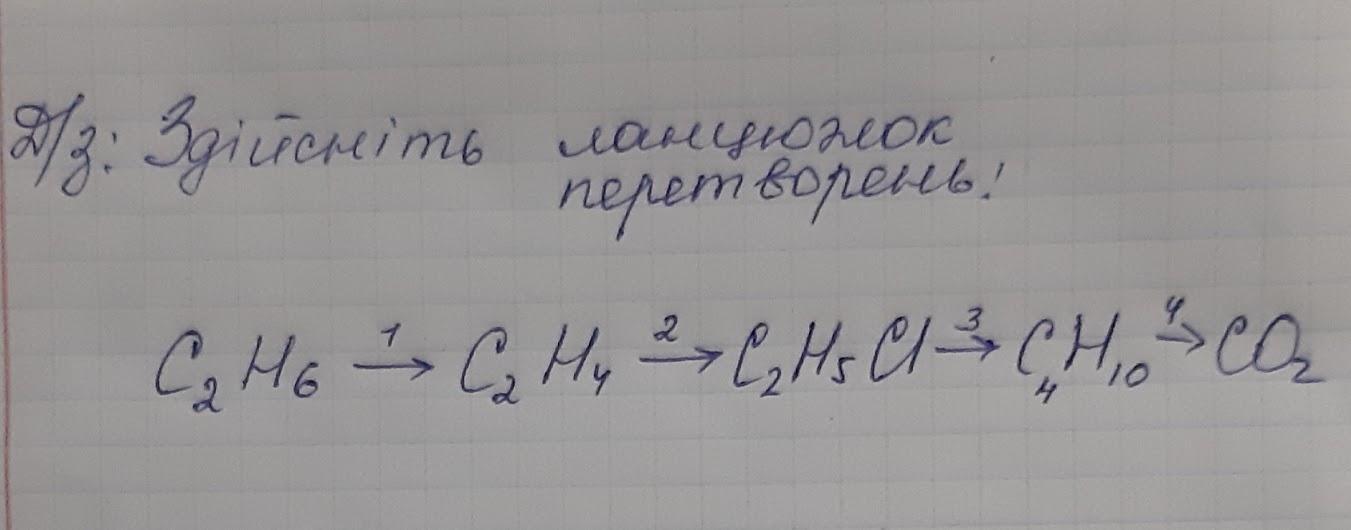 Д/з: Здійсніть ланцюжок
перетворень!
C₂H₆ →¹ C₂H₄ →² C₂H₅Cl →³ C₄H₁₀ →⁴ CO₂